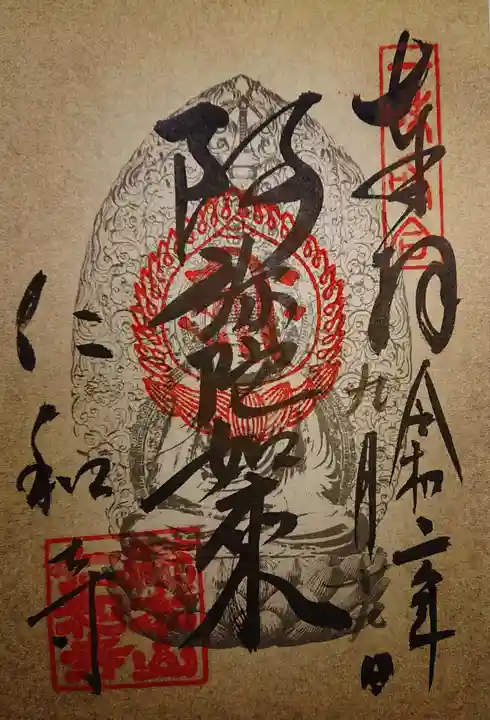 奉拝
令和二年
九月廿九日
阿弥陀如来
仁和寺